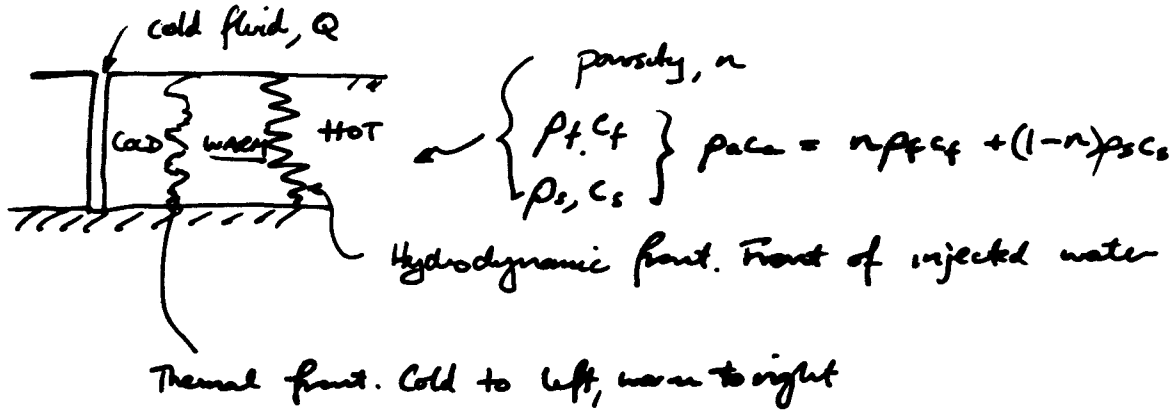 cold fluid, Q
COLD WARM HOT
porosity, n
ρf, cf
ρs, cs
ρaca = nρfcf + (1-n)ρscs
Hydrodynamic front. Front of injected water
Thermal front. Cold to left, warm to right